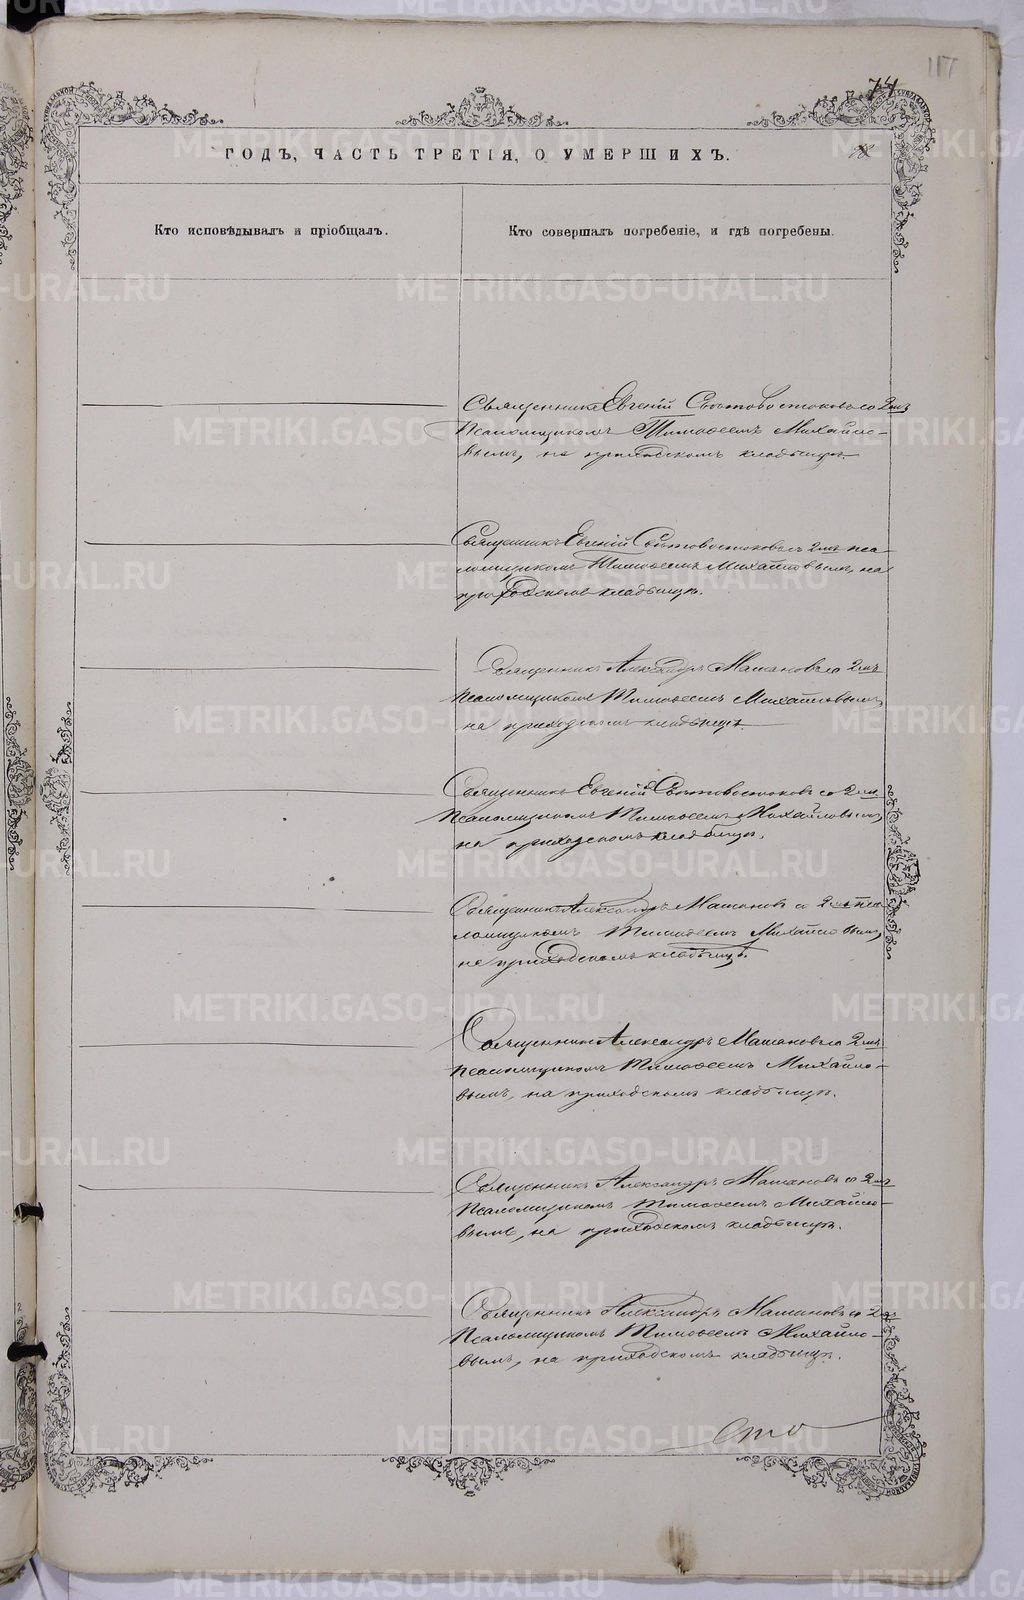 117
74
ГОДЪ, ЧАСТЬ ТРЕТІЯ, О УМЕРШИХЪ.
Кто исповѣдывалъ и пріобщалъ.
Кто совершалъ погребеніе, и гдѣ погребены.
Священникъ Евгеній Свѣтовостоковъ со 2мъ
Псаломщикомъ Тимоѳеемъ Михайло-
вымъ, на приходскомъ кладбищѣ.
Священникъ Евгеній Свѣтовостоковъ съ 2мъ пса-
ломщикомъ Тимоѳеемъ Михайловымъ, на
приходскомъ кладбищѣ.
Священникъ Александръ Машановъ со 2мъ
Псаломщикомъ Тимоѳеемъ Михайловымъ,
на приходскомъ кладбищѣ.
Священникъ Евгеній Свѣтовостоковъ со 2мъ
Псаломщикомъ Тимоѳеемъ Михайловымъ,
на приходскомъ кладбищѣ.
Священникъ Александръ Машановъ со 2мъ пса-
ломщикомъ Тимоѳеемъ Михайловымъ,
на приходскомъ кладбищѣ.
Священникъ Александръ Машановъ со 2мъ
Псаломщикомъ Тимоѳеемъ Михайло-
вымъ, на приходскомъ кладбищѣ.
Священникъ Александръ Машановъ со 2мъ
Псаломщикомъ Тимоѳеемъ Михайло-
вымъ, на приходскомъ кладбищѣ.
Священникъ Александръ Машановъ со 2мъ
Псаломщикомъ Тимоѳеемъ Михайло-
вымъ, на приходскомъ кладбищѣ.
METRIKI.GASO-URAL.RU